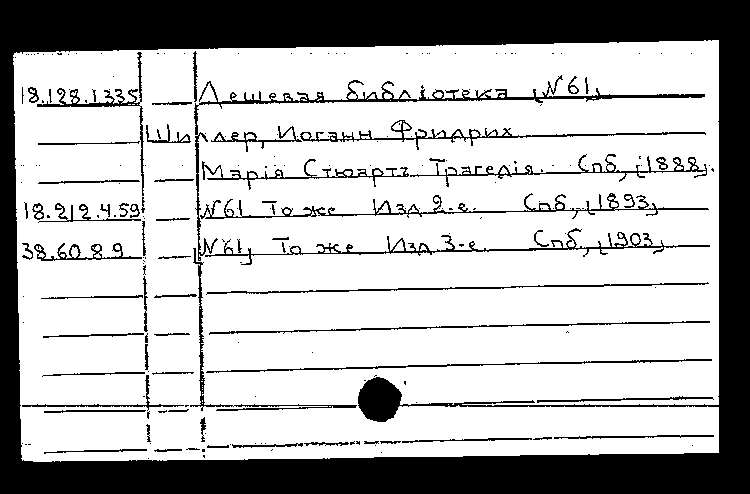 18.128.1335 Дешевая библіотека [N 61]
Шиллер, Иоганн Фридрих
Марія Стюартъ Трагедія. Спб, [1888].
18.212.4.59 N61 То же Изд 2-е. Спб, [1893]
38.60 8 9 [N 61] То же Изд 3-е. Спб, [1903]